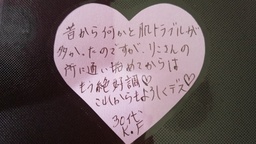 昔から何かと肌トラブルが
多かったのですが、りこさんの
所に通い始めてからは
もう絶対調♡
これからもよろしくデス♡
30代
K.F